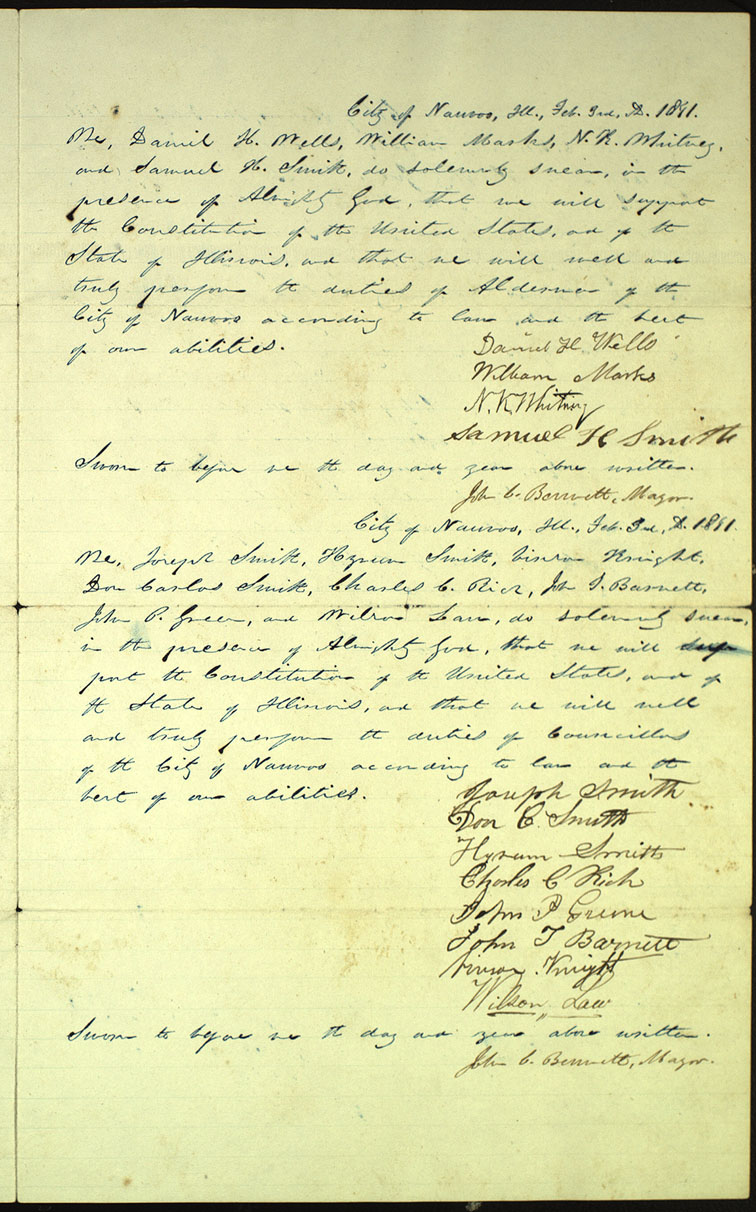 City of Nauvoo, Ill., Feb. 3rd, A. 1841.
We, Daniel H. Wells, William Marks, N. K. Whitney,
and Samuel H. Smith, do solemnly swear, in the
presence of Almighty God, that we will support
the Constitution of the United States, and of the
State of Illinois, and that we will well and
truly perform the duties of Aldermen of the
City of Nauvoo according to law and the best
of our abilities.
Daniel H. Wells
William Marks
N. K. Whitney
Samuel H Smith
Sworn to before me the day and year above written.
John C. Bennett, Mayor.
City of Nauvoo, Ill., Feb. 3rd, A. 1841.
We, Joseph Smith, Hyrum Smith, Vinson Knight,
Don Carlos Smith, Charles C. Rich, John T. Barnett,
John P. Green, and Wilson Law, do solemnly swear,
in the presence of Almighty God, that we will sup
port the Constitution of the United States, and of
the State of Illinois, and that we will well
and truly perform the duties of Councillors
of the City of Nauvoo according to law and the
best of our abilities.
Joseph Smith
Don C. Smith
Hyrum Smith
Charles C Rich
John P Greene
John T Barnett
Vinson Knight
Wilson Law
Sworn to before me the day and year above written.
John C. Bennett, Mayor.